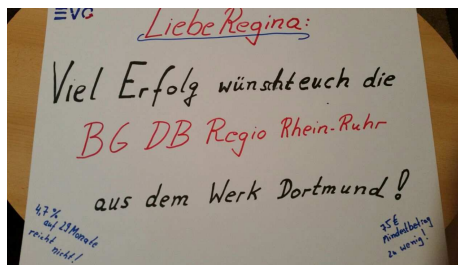 EVG
Liebe Regina:
Viel Erfolg wünshteuch die
BG DB Regio Rhein-Ruhr
aus dem Werk Dortmund!
4,7%
auf 29 Monate
reicht nicht!
75€
Mindestbetrag
zu wenig!